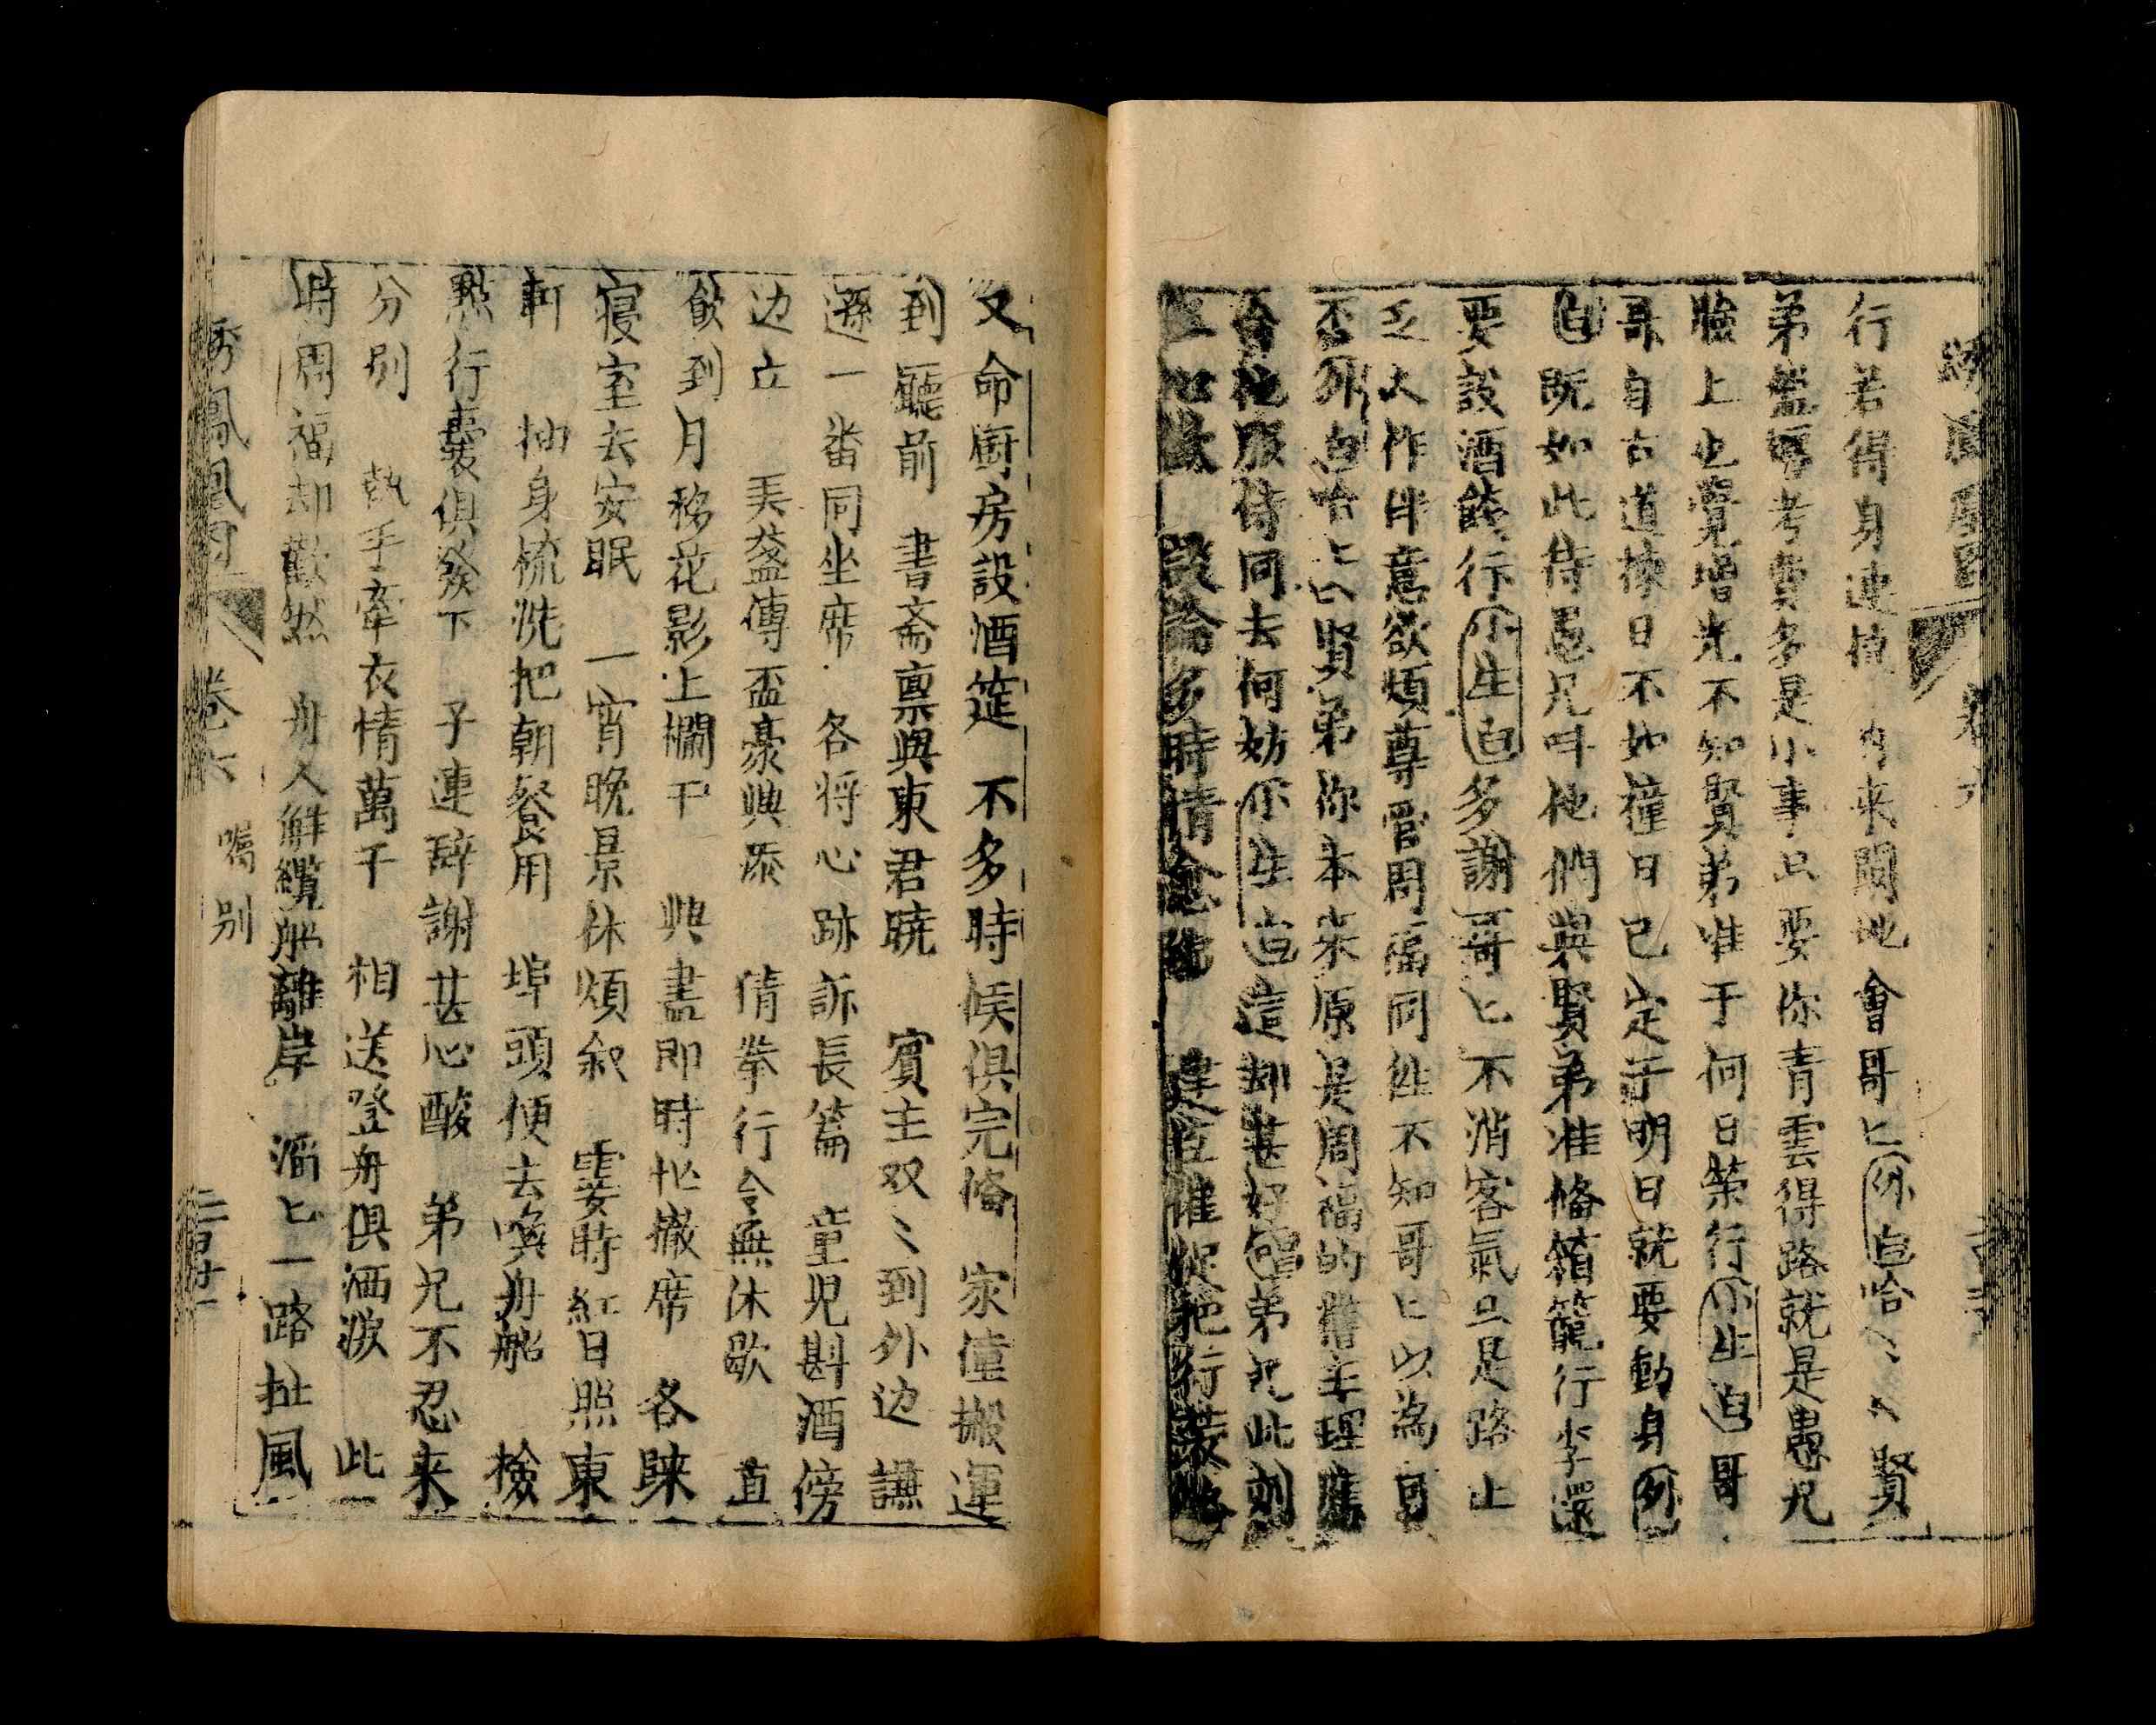 卷六
行若得身連捷 再來關地會哥匕外白哈〻〻賢
弟盤纏考費多是小事只要你青雲得路就是愚兄
臉上也覺增光不知賢弟准于何日榮行小生白哥
哥自古道揀日不如撞日已定于明日就要動身外
白既如此待愚兄叫他們與賢弟准俻箱籠行李還
要設酒餞行小生白多謝哥匕不消客氣只是路上
乏人作伴意欲煩尊管周福同往不知哥匕以為可
否外白哈匕匕賢弟你本來原是周福的舊主理應
命他服侍同去何妨小生白這却甚好唱弟兄此刻
談論多時情 把行
又命廚房設酒筵 不多時候俱完俻 家僮搬運
到廳前 書斋禀與東君曉 賓主双〻到外边 謙
遜一畨同坐席 各将心跡訴長篇 童児斟酒傍
边立 美盞傳盃豪興添 倩拳行令無休歇 直
飲到月移花影上欄干 興盡即時忙撤席 各歸
寝室去安眠 一宵晩景休煩叙 霎時紅日照東
軒 抽身梳洗把朝餐用 埠頭便去喚舟船 檢
點行囊俱發下 子連辞謝甚心酸 弟兄不忍来
分别 執手牽衣情萬千 相送登舟俱洒淚 此
時周福却歡然 舟人解纜船離岸 滔匕一路扯風
绣鳳凰 卷六 囑别